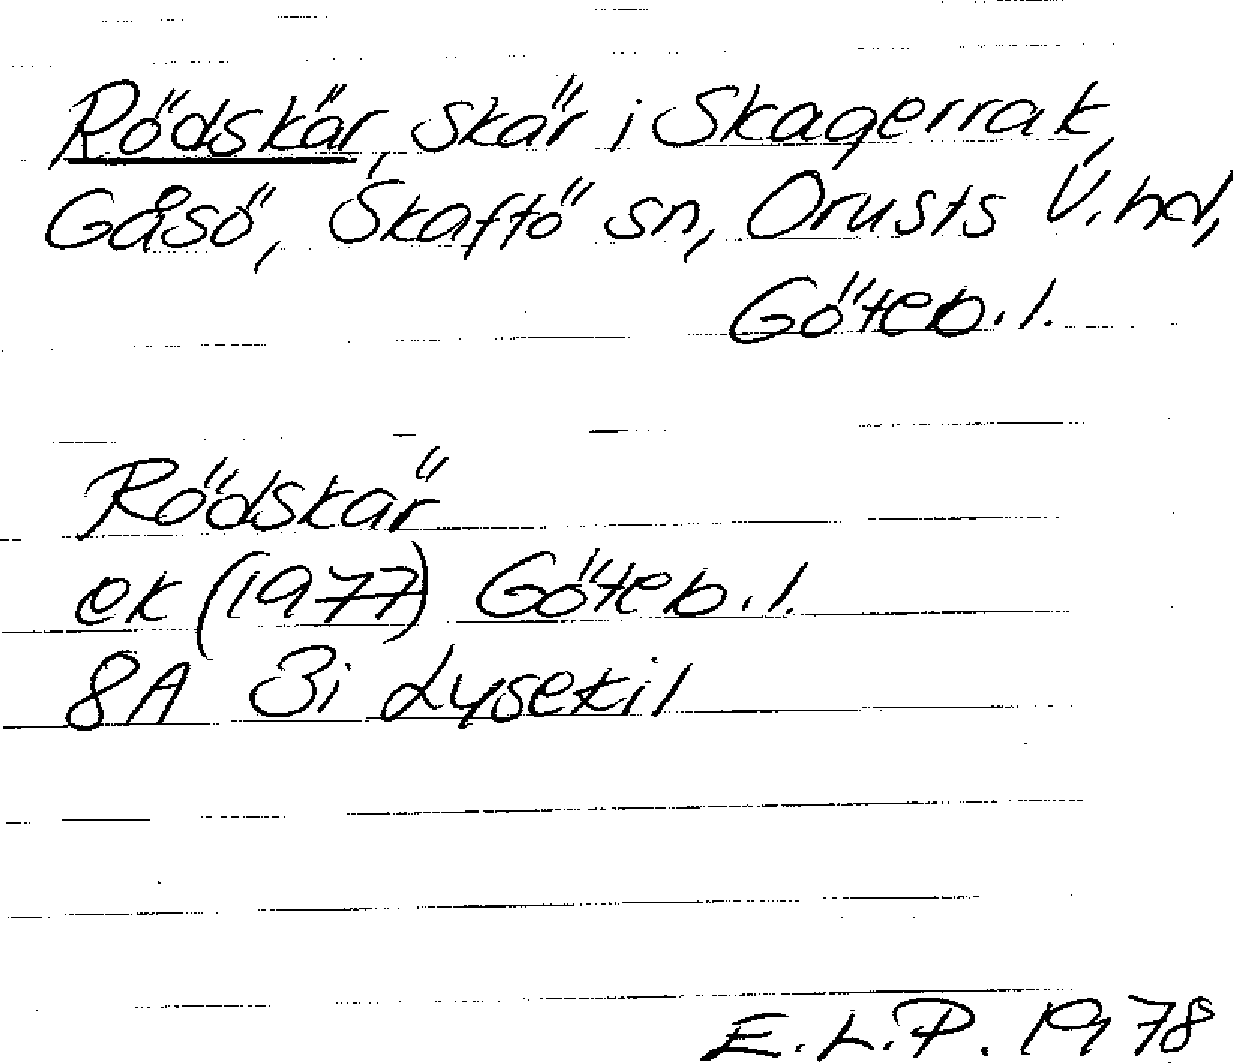 Rödskär, skär i Skagerrak,
Gåsö, Skaftö sn, Orusts V. hd,
Göteb. l.
Rödskär
ek (1977) Göteb. l.
8A 3i Lysekil
E.L.P. 1978